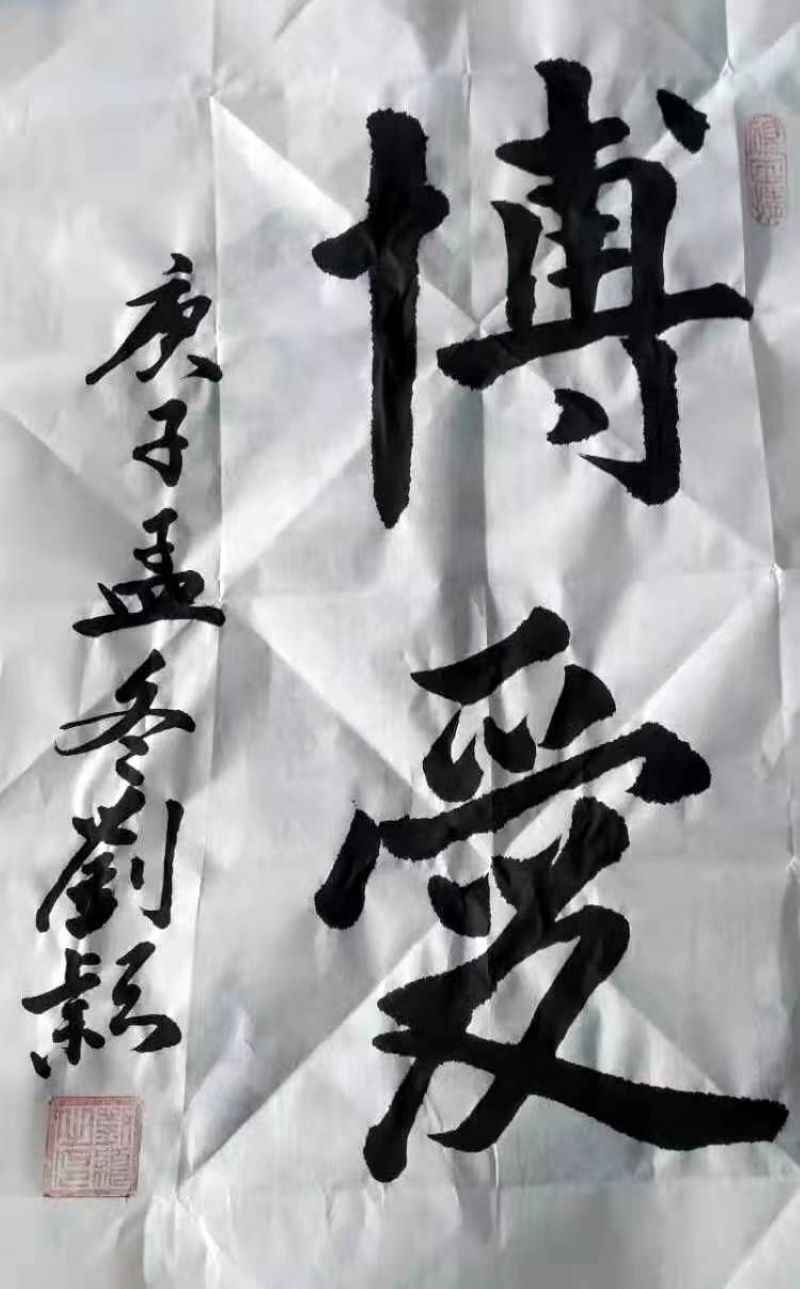 博愛
庚子孟冬劉颖